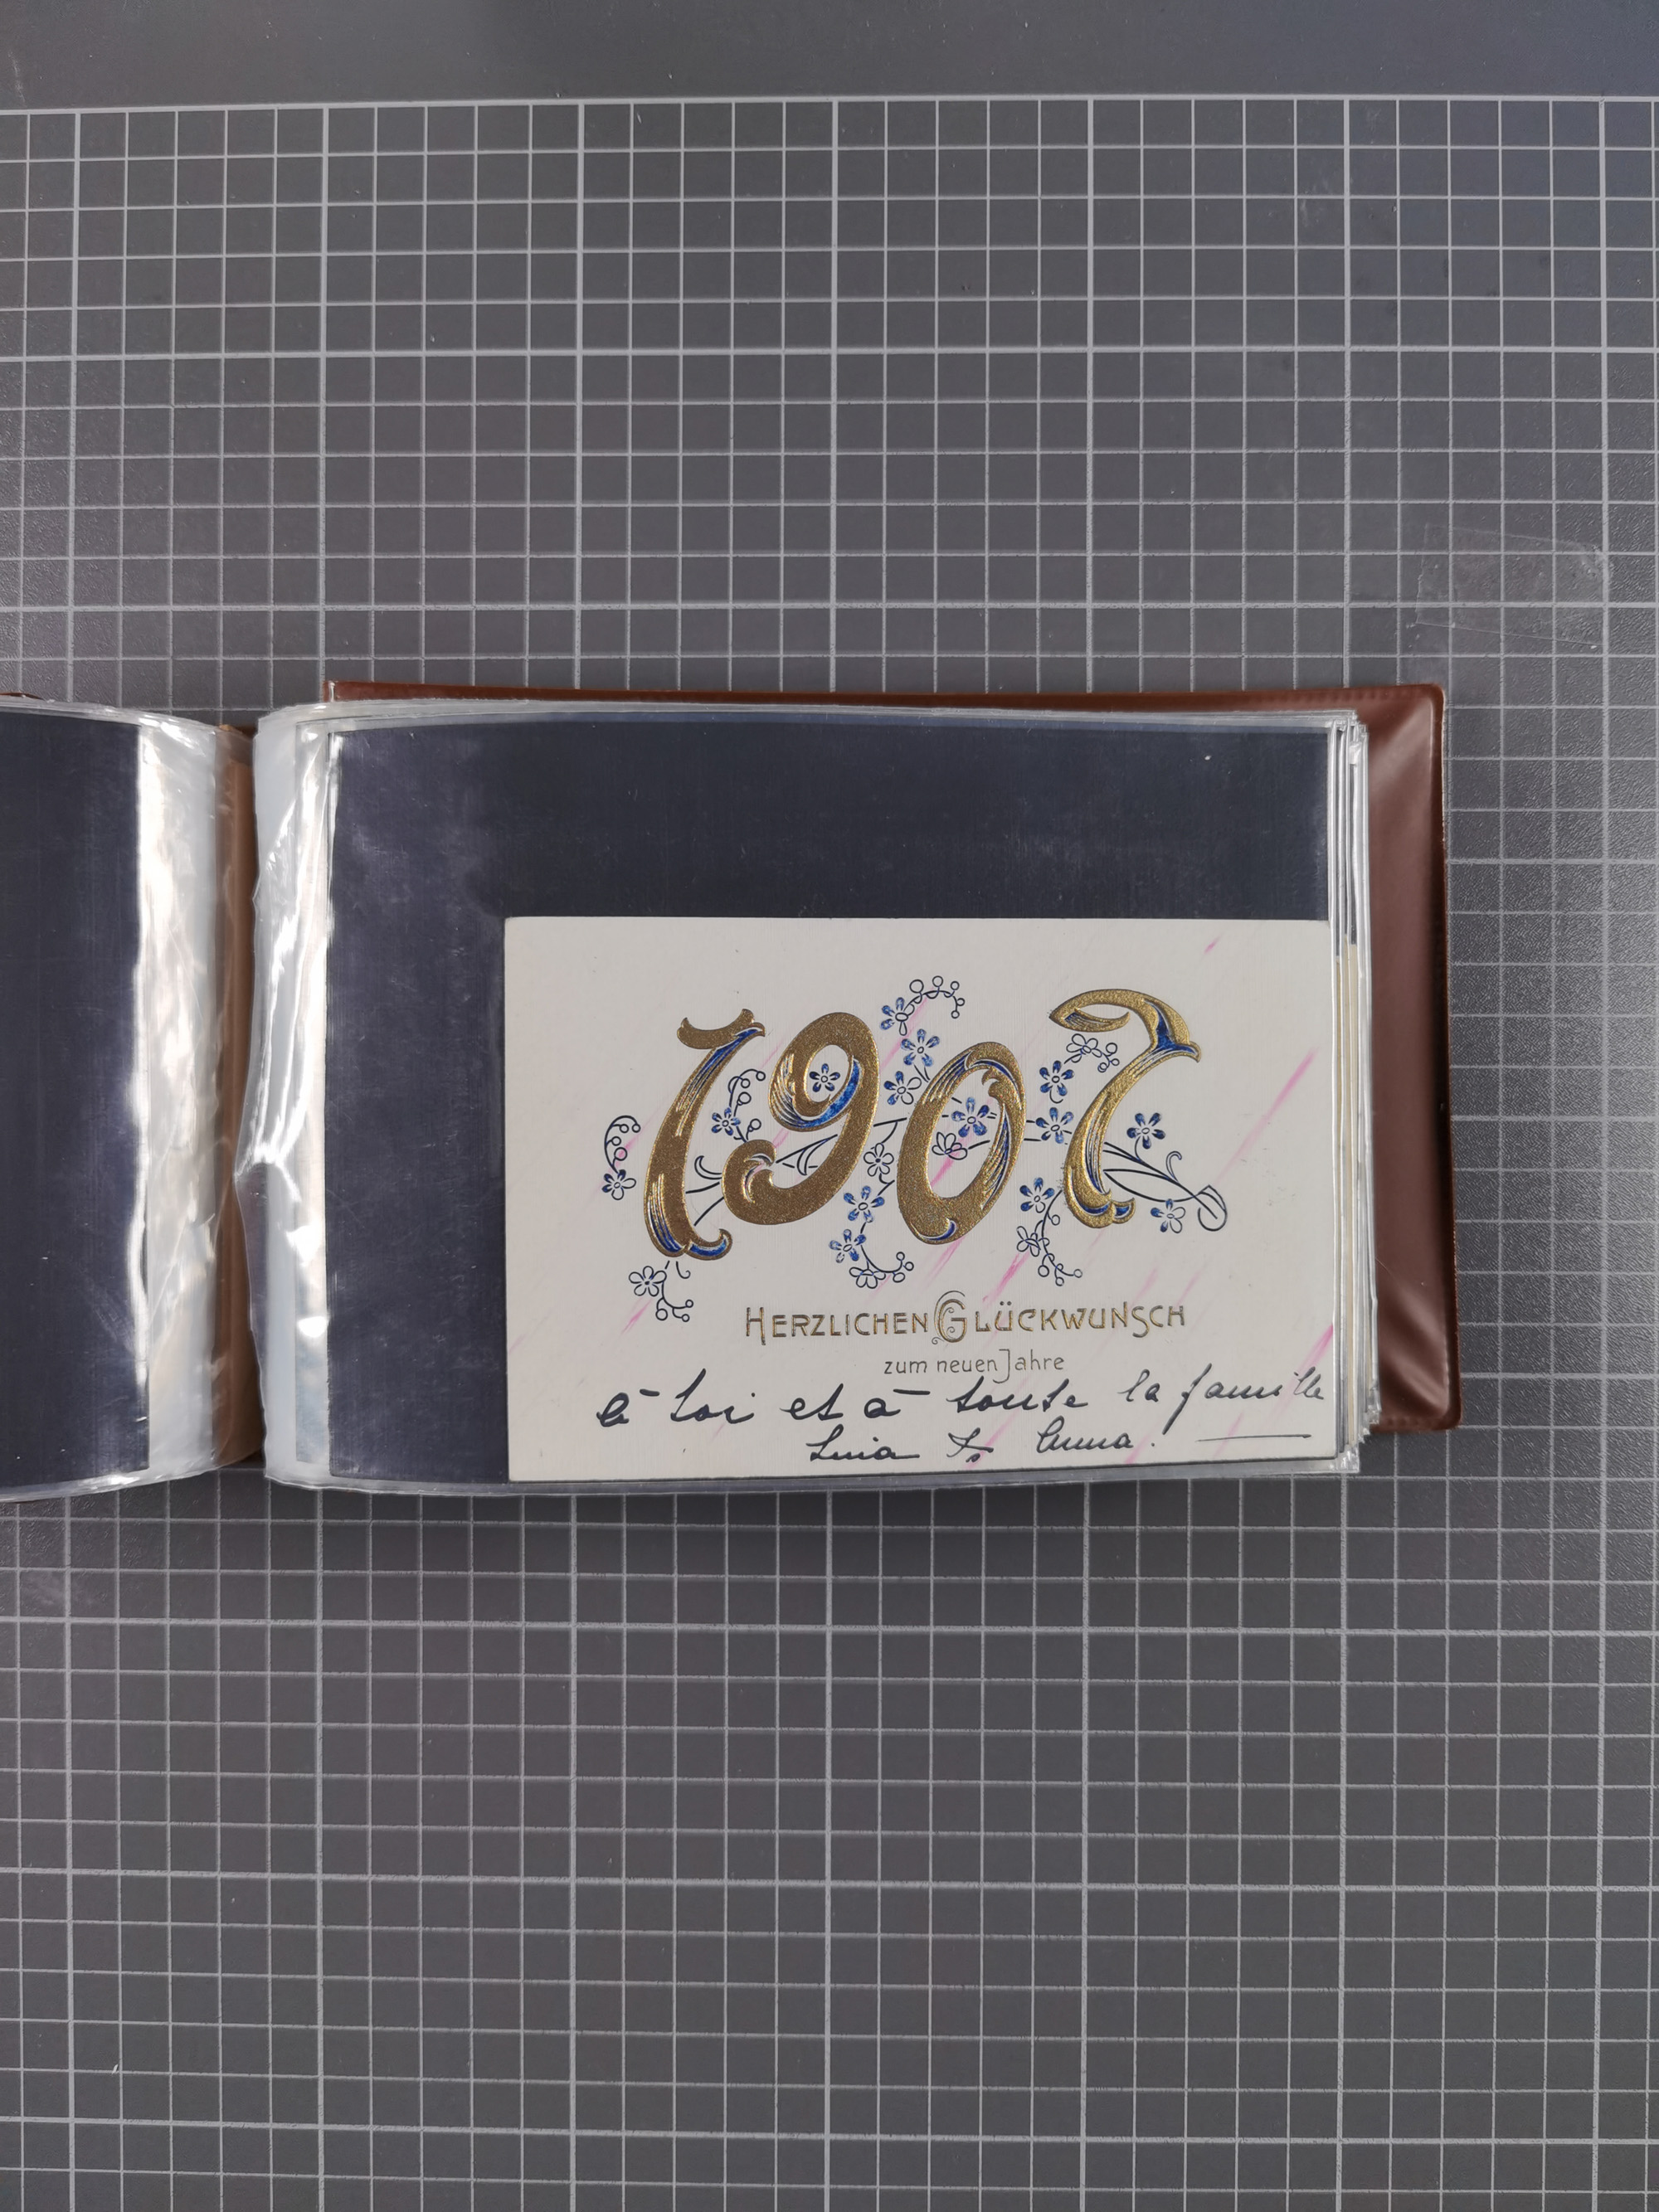 1907
HERZLICHEN GLÜCKWUNSCH
zum neuen Jahre
à toi et à toute la famille
Anna.